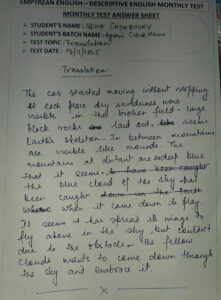 EMPYREAN ENGLISH - DESCRIPTIVE ENGLISH MONTHLY TEST
MONTHLY TEST ANSWER SHEET
➤ STUDENT'S NAME: NEHA CHOWDHURY
➤ STUDENT'S BATCH NAME: Agrani Clerk Mains
➤ TEST TOPIC: Translation
➤ TEST DATE:
Translation
The car started moving without stopping
At each place dry sanddunes were
visible in the broken field - large
black rocks and laid out like seems
Earth's skeleton. In between mountains
are visible like mounds. The
mountains at distant are so deep blue
that it seems to have been caught
the blue cloud of the sky has
been caught down in the Earth
where when it came down to play.
It seems it has spread its wings to
fly above in the sky, but couldn't
due to the obstacle - the fellow
clouds wants to come down through
the sky and embrace it.